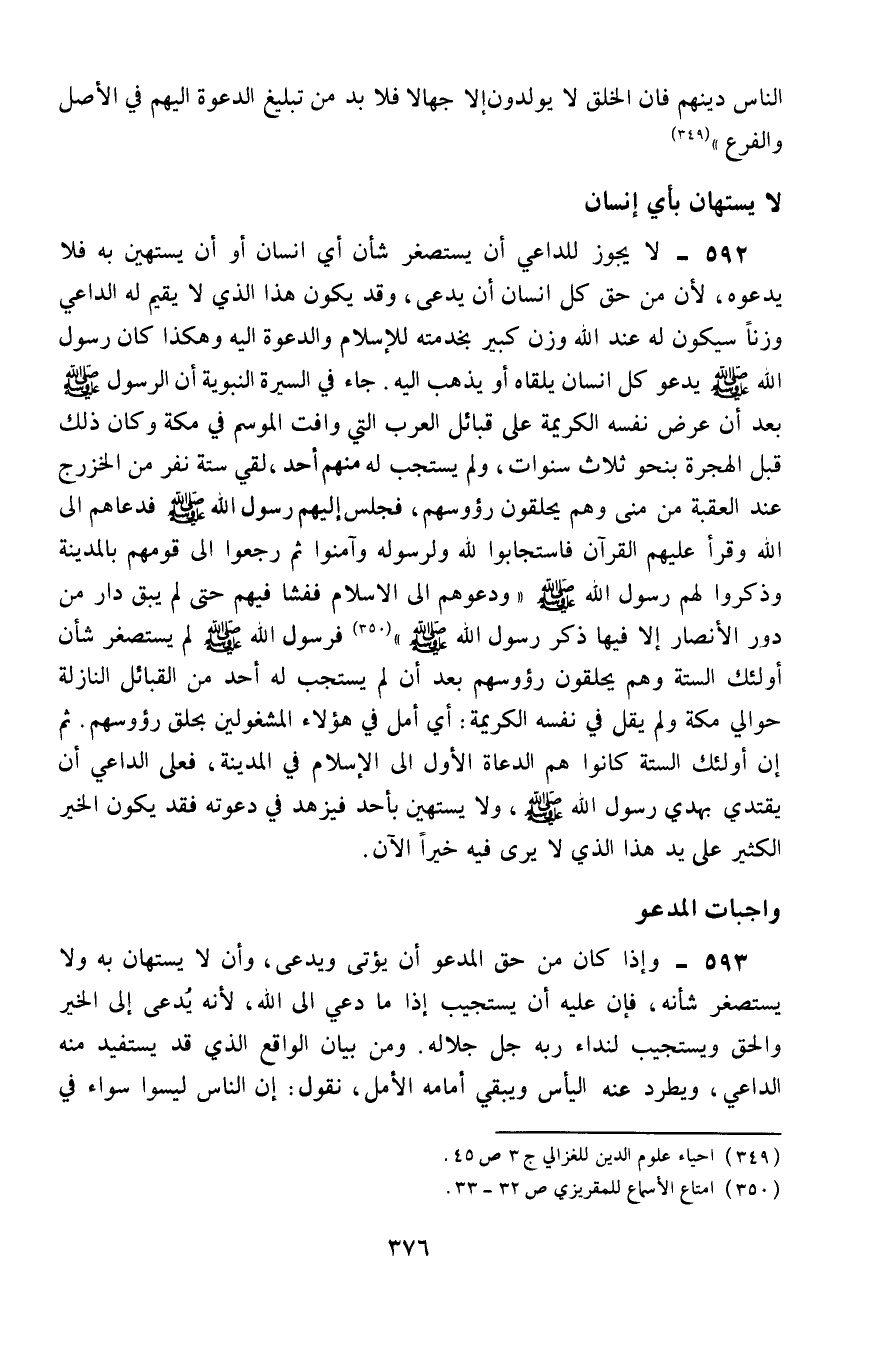 الناس دينهم فان الخلق لا يولدون إلا جهالا فلا بد من تبليغ الدعوة اليهم في الأصل
والفرع »(٣٤٩)
لا يستهان بأي إنسان
٥٩٢ – لا يجوز للداعي أن يستصغر شأن أي انسان أو أن يستهين به فلا
يدعوه، لأن من حق كل انسان أن يدعى، وقد يكون هذا الذي لا يقيم له الداعي
وزناً سيكون له عند الله وزن كبير بخدمته للإسلام والدعوة اليه وهكذا كان رسول
الله ﷺ يدعو كل انسان يلقاه أو يذهب اليه. جاء في السيرة النبوية أن الرسول ﷺ
بعد أن عرض نفسه الكريمة على قبائل العرب التي وافت الموسم في مكة وكان ذلك
قبل الهجرة بنحو ثلاث سنوات، ولم يستجب له منهم أحد، لقي ستة نفر من الخزرج
عند العقبة من منى وهم يحلقون رؤوسهم، فجلس إليهم رسول الله ﷺ فدعاهم الى
الله وقرأ عليهم القرآن فاستجابوا لله ولرسوله وآمنوا ثم رجعوا الى قومهم بالمدينة
وذكروا لهم رسول الله ﷺ « ودعوهم الى الاسلام ففشا فيهم حتى لم يبق دار من
دور الأنصار إلا فيها ذكر رسول الله ﷺ »(٣٥٠) فرسول الله ﷺ لم يستصغر شأن
أولئك الستة وهم يحلقون رؤوسهم بعد أن لم يستجب له أحد من القبائل النازلة
حوالي مكة ولم يقل في نفسه الكريمة: أي أمل في هؤلاء المشغولين بحلق رؤوسهم. ثم
إن أولئك الستة كانوا هم الدعاة الأول الى الإسلام في المدينة، فعلى الداعي أن
يقتدي بهدي رسول الله ﷺ، ولا يستهين بأحد فيزهد في دعوته فقد يكون الخير
الكثير على يد هذا الذي لا يرى فيه خيراً الآن.
واجبات المدعو
٥٩٣ – وإذا كان من حق المدعو أن يؤتى ويدعى، وأن لا يستهان به ولا
يستصغر شأنه، فإن عليه أن يستجيب إذا ما دعي الى الله، لأنه يُدعى إلى الخير
والحق ويستجيب لنداء ربه جل جلاله. ومن بيان الواقع الذي قد يستفيد منه
الداعي، ويطرد عنه اليأس ويبقي أمامه الأمل، نقول: إن الناس ليسوا سواء في
(٣٤٩) احياء علوم الدين للغزالي ج ٣ ص ٤٥.
(٣٥٠) امتاع الأسماع للمقريزي ص ٣٢ – ٣٣.
٣٧٦